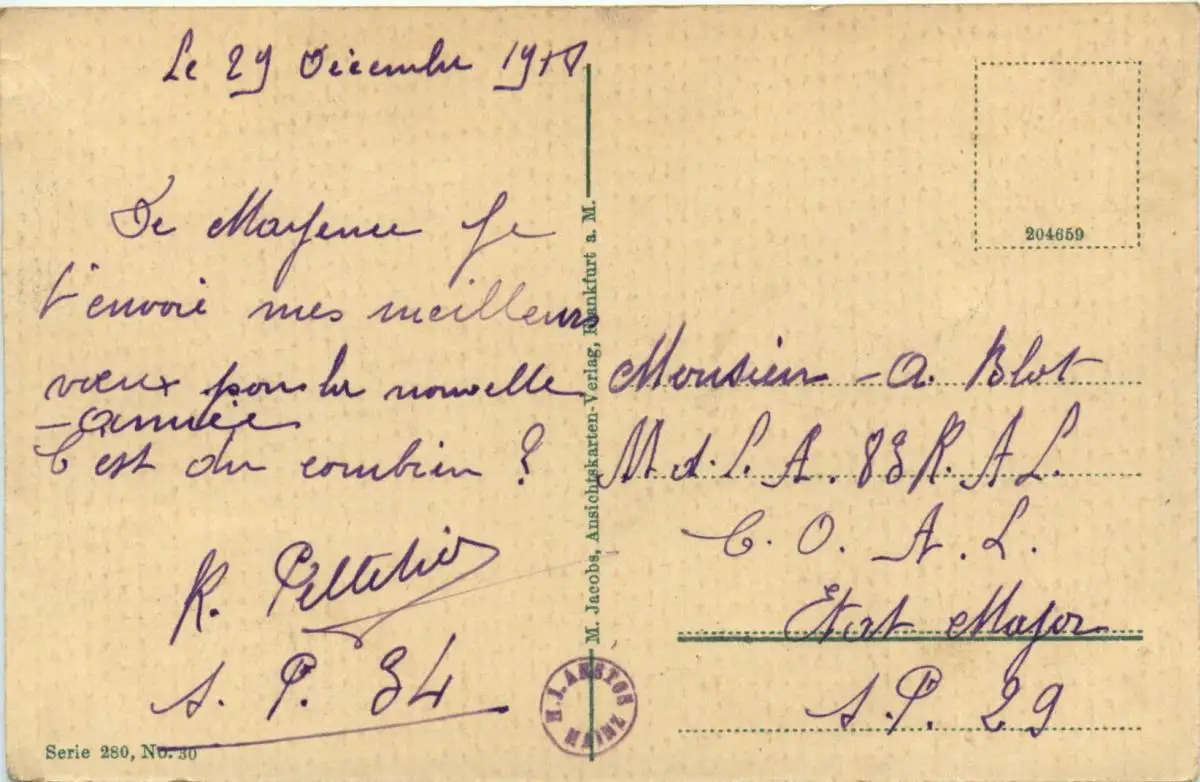 Le 29 Décembre 19
De Mayence je
t'envoie mes meilleurs
vœux pour la nouvelle
année
C'est du combien ?
R. Pelletier
S. P. 34
Serie 280, No. 30
M. Jacobs, Ansichtskarten-Verlag, Frankfurt a. M.
MAINZ
204659
Monsieur A. Blot
M d. L. A. 83 R. A L.
C. O. A. L.
Etat Major
S. P. 29